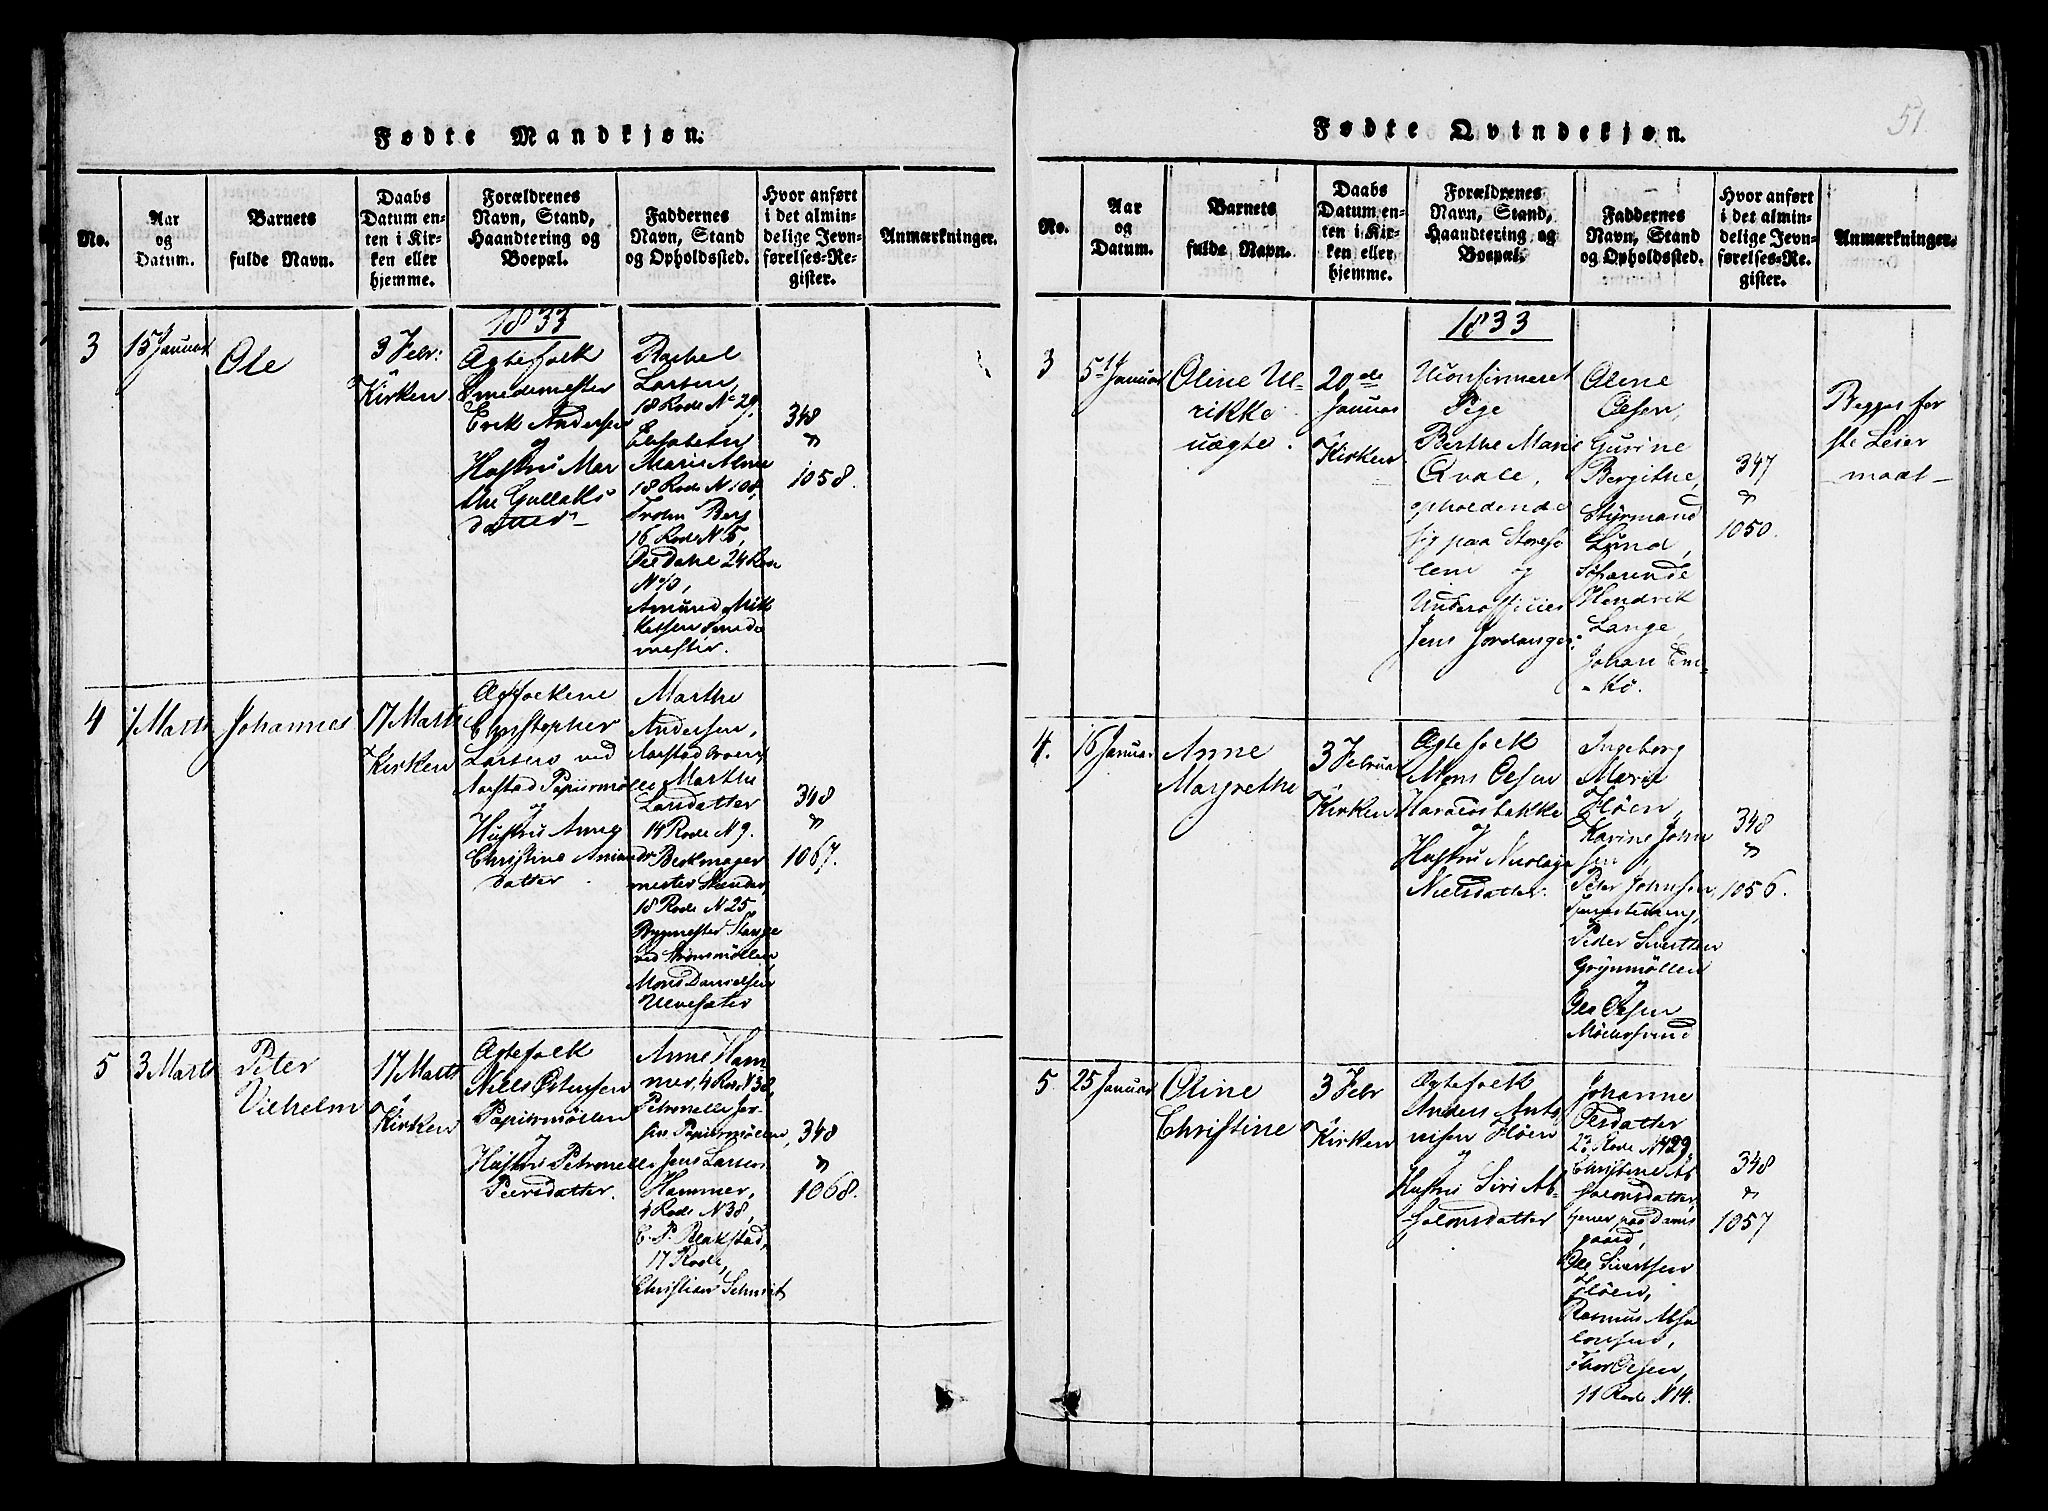 Fødte Mandkjøn.
No.
Aar
og
Datum.
Barnets
fulde Navn.
Daabs
Datum en-
ten i Kir-
ken eller
hjemme.
Forældrenes
Navn, Stand,
Haandtering og
Boepæl.
Faddernes
Navn, Stand
og Opholdssted.
Hvor anført
i det almin-
delige Jevn-
førelses-Re-
gister.
Anmærkninger.
1833
3
15 Januar
Ole
3 Febr:
i Kirken
Ægtefolk
Smedemester
Erik Andersen
og
Hustru Mar
the Gullaks
datter
Rachel
Larsen,
18 Rode No 29,
Elisabeth
Marie
18 Rode N 108,
Berf
16 Rode N 5,
24 Rode
N 10,
Amund Mik
kelsen Smede
mester.
348
1058.
4
1 Marts
Johannes
17 Marts
i Kirken
Ægtfolkene
Christopher
Larsen ved
Aarstad Papiirmølle
og
Hustru Anne
Christine Amunds
datter.
Marthe
Andersen,
Marthe
Larsdatter
14 Rode N 9.
mester
18 Rode N 25,
Bygmester Stange
ved
Mons Danielsen
Ulvesæter
348
1067.
5
3 Marts
Peter
Vilhelm
17 Marts
i Kirken
Ægtefolk
Niels Østensen
Papiirmøllen
og
Hustru Petronelle
Peersdatter.
Anne Ham
mer, 4 Rode N 38,
Petronelle
Papiirmøllen,
Jens Larsen
Hammer,
4 Rode N 38,
C. P. Blakstad,
17 Rode,
Christian Schmit
348
1068.
51.
Fødte Qvindekjøn.
No.
Aar
og
Datum.
Barnets
fulde Navn.
Daabs
Datum en-
ten i Kir-
ken eller
hjemme.
Forældrenes
Navn, Stand,
Haandtering og
Boepæl.
Faddernes
Navn, Stand
og Opholdssted.
Hvor anført
i det almin-
delige Jevn-
førelses-Re-
gister.
Anmærkninger.
1833
3
5 Januar
Oline Ul-
rikke
uægte.
20de
Januar
i Kirken
Uconfirmeret
Pige
Berthe Marie
Qvale,
opholdende
sig paa
og
Underofficier
Jens Jordanger.
Oline
Olsen,
Gurine
Bergithe,
Styrmand
Lund,
Søfarende
Hendrik
Lange,
Johan
347
1050.
Begges før
ste Leier
maal
4.
16 Januar
Anne
Margrethe
3 Februar
i Kirken
Ægtefolk
Mons Olsen
Haraldsbakke
og
Hustru
Nielsdatter.
Ingeborg
Marie
Fløen,
Karine John
sen,
Peter Johnsen,
Peder Sivertsen
Grynmøllen
og
Ole Olsen
348
1056.
5
25 Januar
Oline
Christine
3 Febr
i Kirken
Ægtefolk
Anders Antø
nisen Fløen
og
Hustru Siri Ab-
salonsdatter
Johanne
Olsdatter
23 Rode N 129,
Christine Ab
salonsdatter,
tjener paa Dams
gaard,
Ole Sivertsen
Fløen,
Rasmus Absa
lonsen,
Thor Olsen,
11 Rode N 14.
348
1057